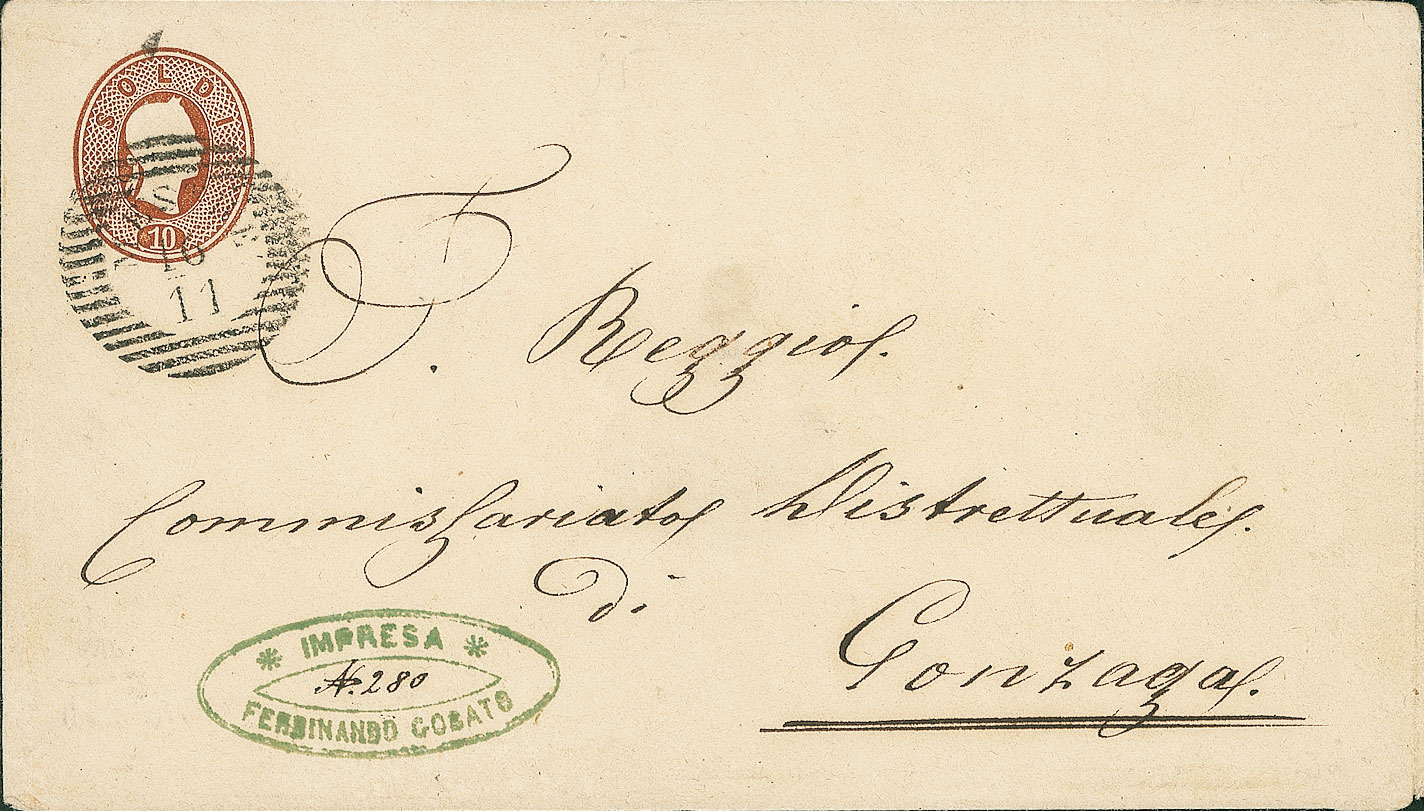 SOLDI
10
10
11
I. Reggio.
Commissariato Distrettuale.
di
Gonzaga.
IMPRESA
N. 280
FERDINANDO GOBATO